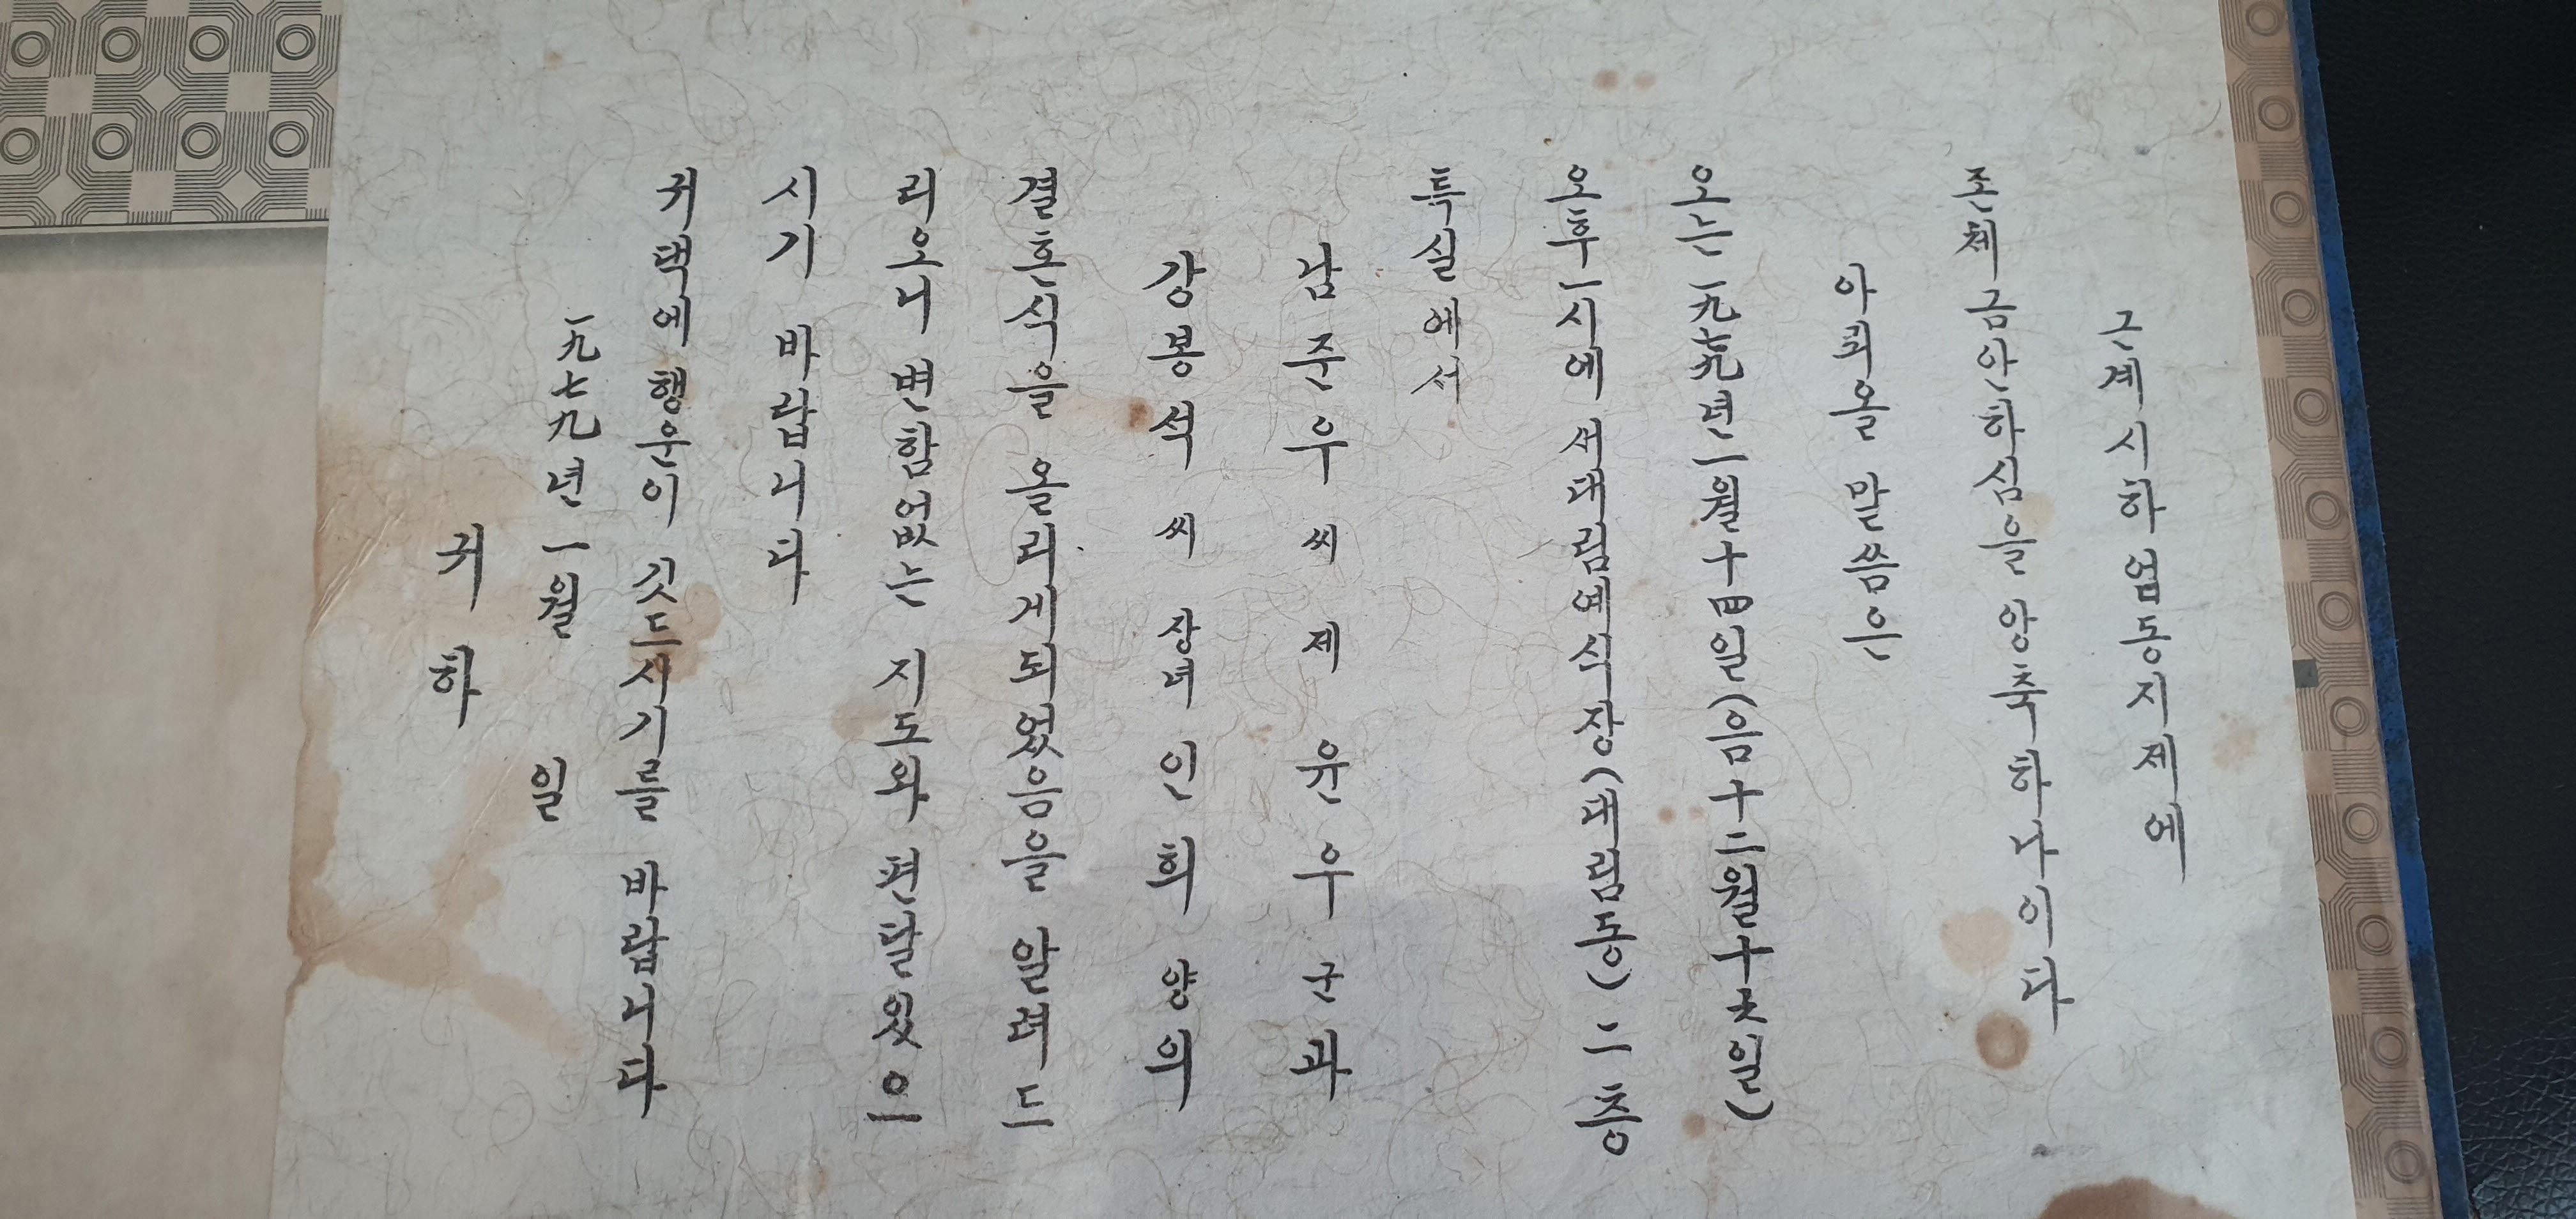 근계시하 엄동지제에
존체 금안하심을 앙축하나이다
아뢰올 말씀은
오는 一九六九년 一월 十四일(음 十一월 일)
오후 一시에 예식장( ) 二층
특실에서
김주수씨 제 윤수군과
강봉석씨 장녀 인희양의
결혼식을 올리게 되었음을 알려드
리오니 변함없는 지도와 편달있으
시기 바랍니다
귀댁에 행운이 깃드시기를 바랍니다
一九六九년 一월 일
귀하